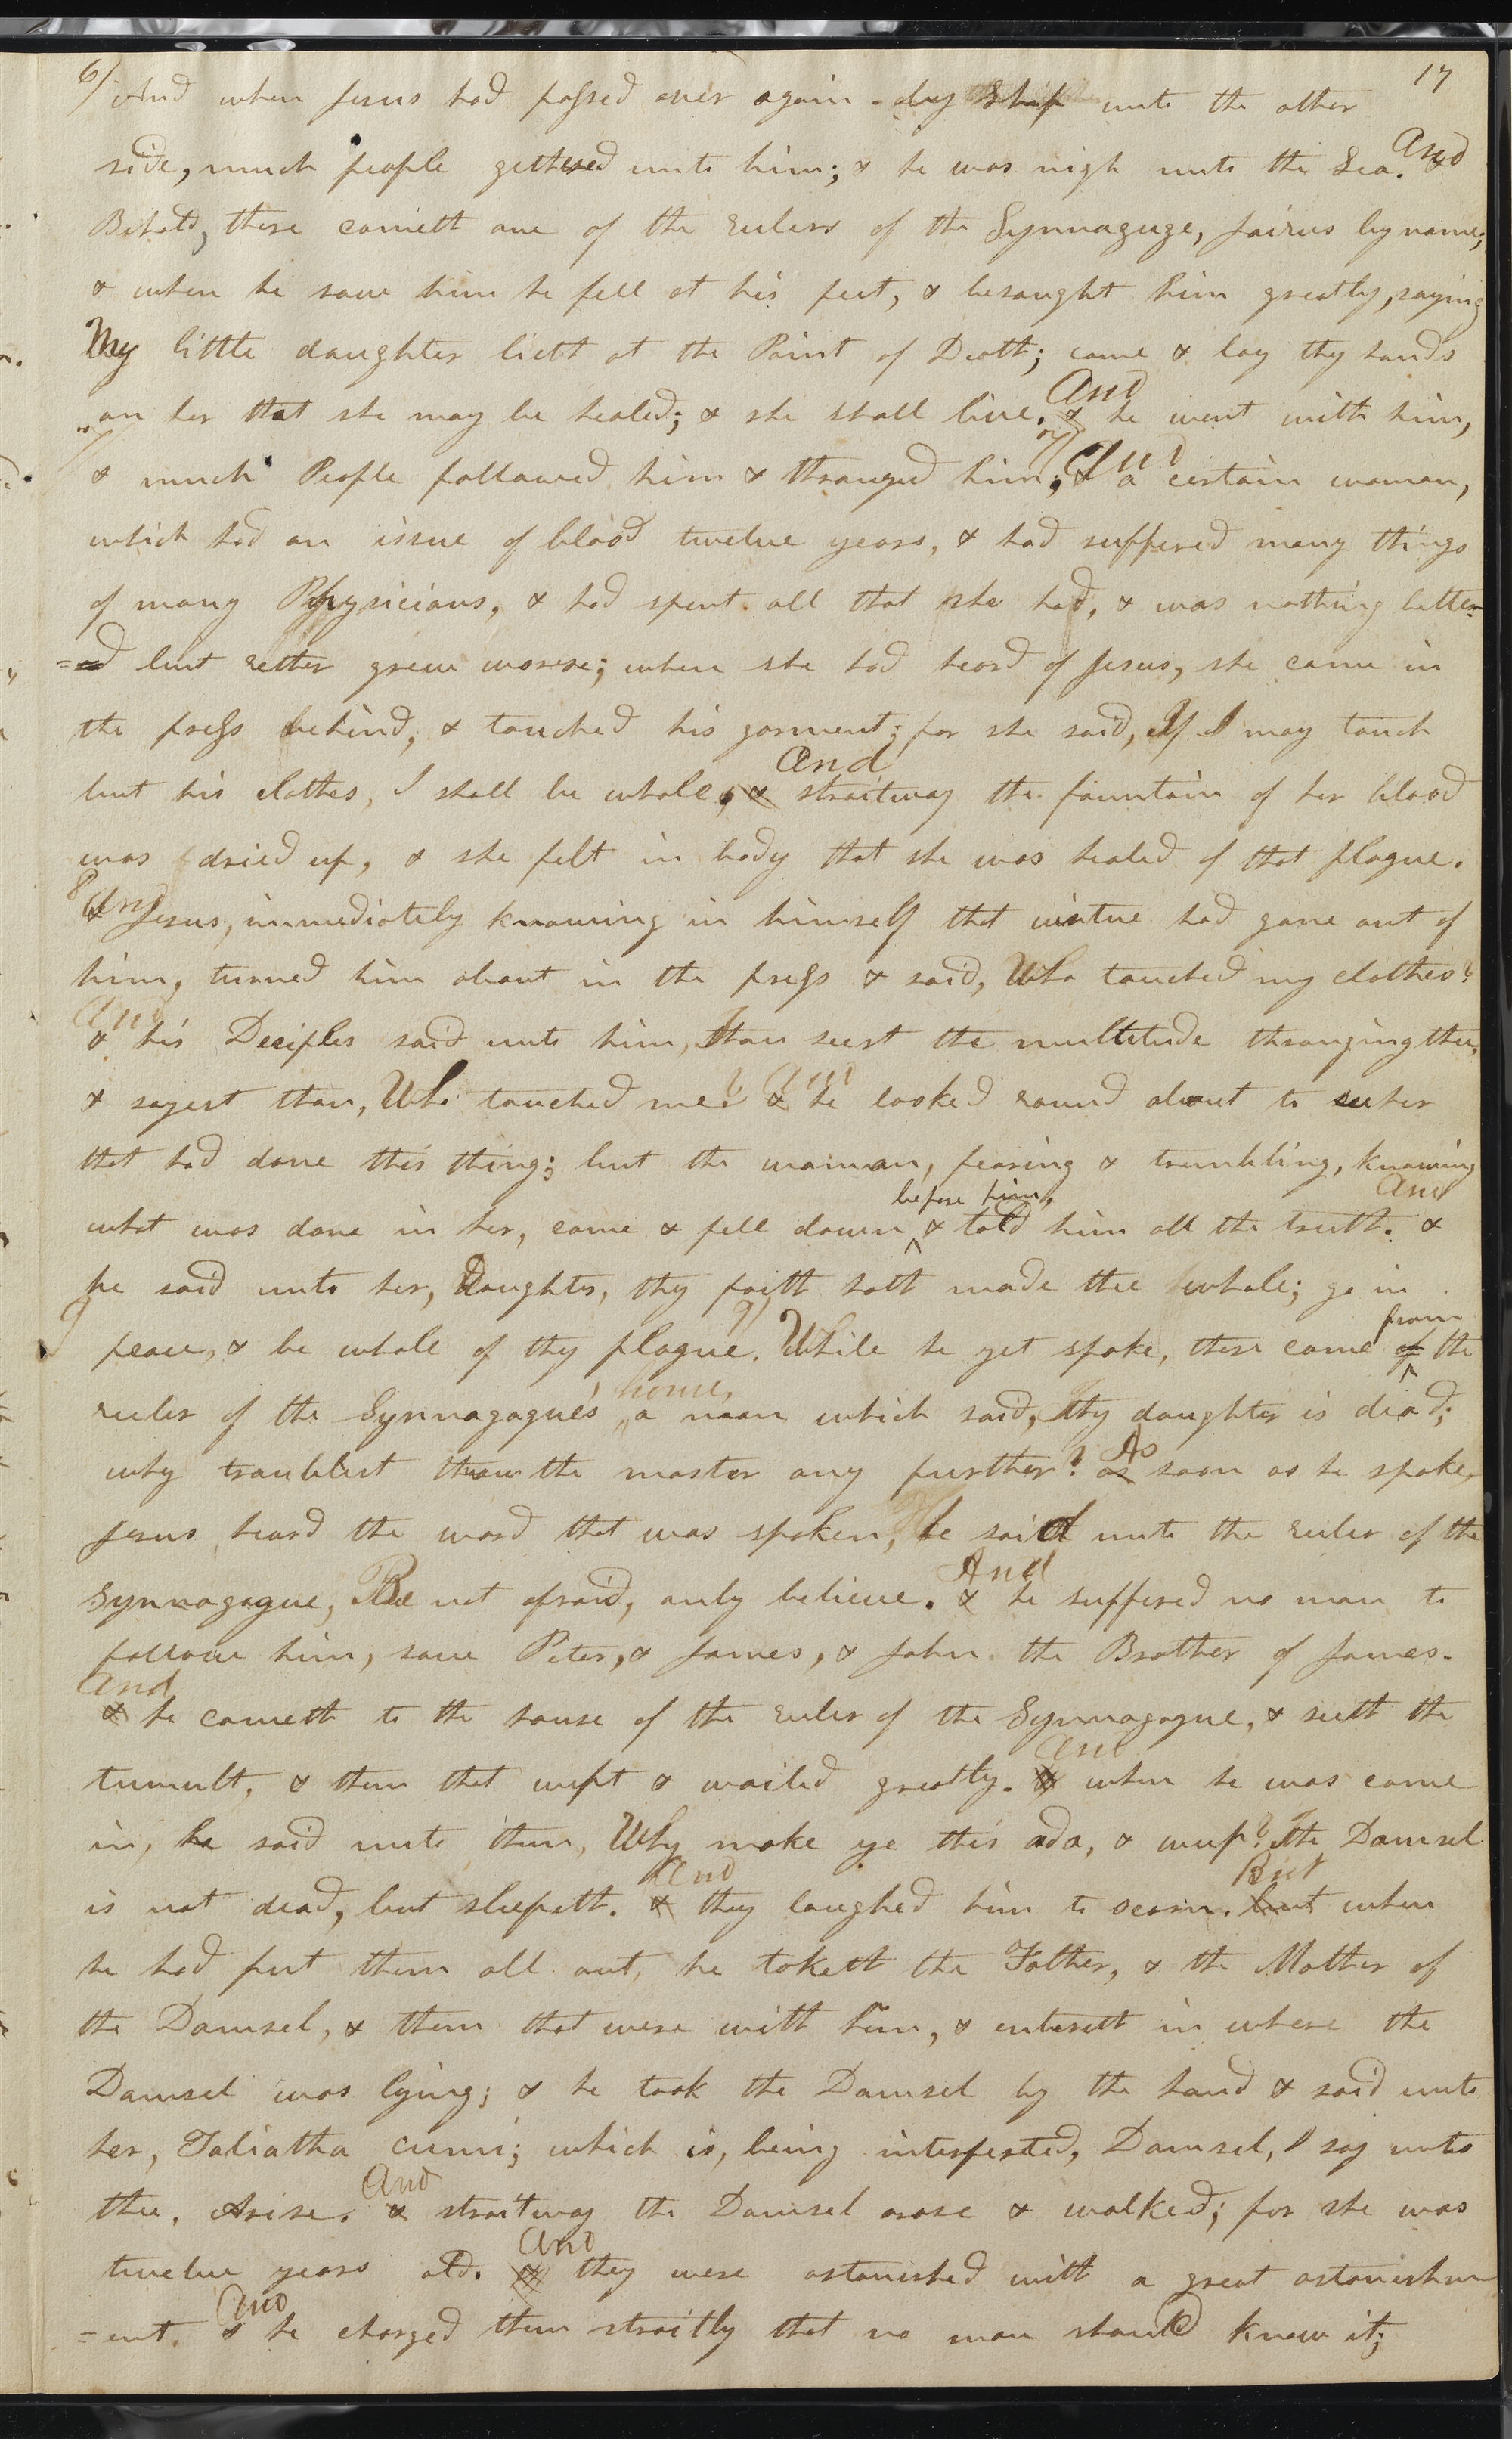 17
6/ And when Jesus had passed over again by Ship unto the other
side, much people gethered unto him; & he was nigh unto the Sea. And &
Behold, there cometh one of the rulers of the Synnaguge, Jairus by name;
& when he saw him he fell at his feet, & besought him greatly, saying
My little daughter lieth at the Point of Death; come & lay thy hands
on her that she may be healed; & she shall live. And & he went with him,
7/ & much People followed him & thronged him; & And a certain woman,
which had an issue of blood twelve years, & had suffered many things
of many Physicians, & had spent all that she had, & was nothing better-
=ed but rether grew worse; when she had heard of Jesus, she came in
the press behind, & touched his garment; for she said, If I may touch
but his clothes, I shall be whole, & And straitway the fountain of her blood
was dried up, & she felt in body that she was healed of that plague.
8 & And Jesus, immediately knowing in himself that virtue had gone out of
him, turned him about in the press & said, Who touched my clothes?
And & his Deciples said unto him, Thou seest the multitude thronging thee,
& sayest thou, Who touched me? & And he looked round about to see her
that had done this thing; but the woman, fearing & trembling, knowing
what was done in her, came & fell down ^ before him, & told him all the truth. And &
he said unto her, Daughter, thy faith hath made thee whole; go in
9 peace, & be whole of thy plague. 9/ While he yet spoke, there came of ^ from the
ruler of the Synnagogue's house, a man which said, Thy daughter is dead;
why troublest thou the master any further? as As soon as he spoke,
Jesus heard the word that was spoken, he said unto the ruler of the
Synnagogue, Be not afraid, only believe. & And he suffered no man to
follow him, save Peter, & James, & John the Brother of James.
And & he cometh to the house of the ruler of the Synnagogue, & seeth the
tumult, & them that wept & wailed greatly. & And when he was come
in, he said unto them, Why make ye this ado, & weep? The Damsel
is not dead, but sleepeth. & And they laughed him to scorn. but But when
he had put them all out, he taketh the Father, & the Mother of
the Damsel, & them that were with him, & entereth in where the
Damsel was lying; & he took the Damsel by the hand & said unto
her, Taliatha cumi; which is, being interpreted, Damsel, I say unto
thee, Arise. & And straitway the Damsel arose & walked; for she was
twelve years old. & And they were astonished with a great astonishm
=ent. & And he charged them straitly that no man should know it;